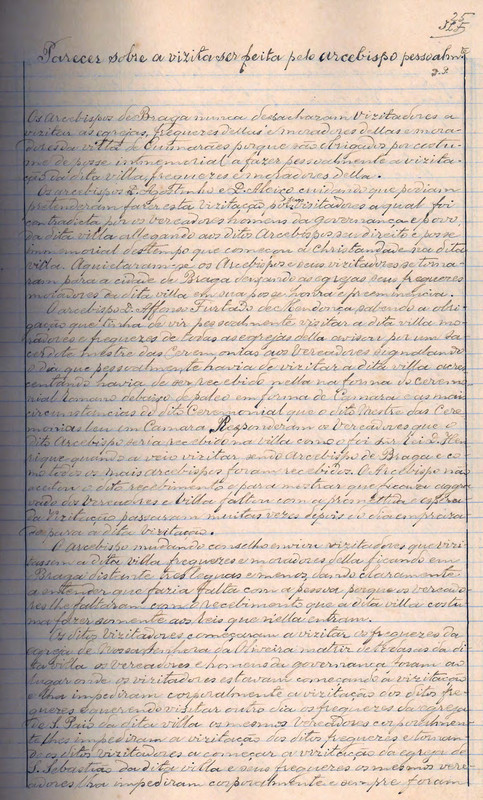 25
Parecer sobre a vizita ser feita pelo arcebispo pessoalmte
Os Arcebispos de Braga nunca despacharam Vizitadores a
vizitar as egrejas, freguezes dellas e moradores dellas e mora-
dores da villa de Guimarães porque são obrigados por costu-
me de posse immemorial a fazer pessoalmente a vizita-
ção da dita villa, freguezes e moradores della.
Os arcebispos D. Agostinho e D. Aleixo cuidando que podiam
pretenderam fazer esta vizitação por Vizitadores a qual foi
contradicta por os vereadores homens da governança e povo
da dita villa allegando aos ditos Arcebispos seu direito e posse
immemorial do tempo que começou a Christandade na dita
villa. Aquietaram-se os Arcebispos e seus vizitadores se torna-
ram para a cidade de Braga deixando as egrejas seus freguezes
moradores da dita villa em sua posse honra e preeminencia.
O arcebispo D. Affonso Furtado de Mendonça sabendo a obri-
gação que tinha de vir pessoalmente visitar a dita villa mo-
radores e freguezes de todas as egrejas della avisou por um sa-
cerdote mestre das Ceremonias aos Vereadores signalando
o dia que pessoalmente havia de vizitar a dita villa acres
centando havia de ser recebido nella na forma do ceremo-
nial romano debaixo de paleo em forma de Camara e as mais
circunstancias do dito Ceremonial que o dito Mestre das Cere
monias leu em Camara. Responderam os Vereadores que o
dito Arcebispo seria recebido na villa como o foi El-Rei D. Hen-
rique quando a veio vizitar sendo Arcebispo de Braga e co-
mo todos os mais arcebispos foram recebidos. O Arcebispo não
acceitou o dito recebimento e para mostrar que ficava aggra-
vado dos Vereadores e Villa faltou com a promettida e
da vizitação passaram muitas vezes depois do dia empraza-
do para a dita vizitação.
O arcebispo mudando conselho enviou vizitadores que vizi-
tassem a dita villa freguezes e moradores della ficando em
Braga distante tres leguas e menos, dando claramente
a entender que faria falta com a pessoa porque os vereado-
res lhe faltaram com o recebimento que a dita villa costu-
ma fazer somente aos Reis que n'ella entram.
Os ditos Vizitadores começaram a vizitar os freguezes da
egreja de Nossa Senhora da Oliveira matriz de todas as da di-
ta villa os vereadores e homens da governança foram ao
lugar onde os vizitadores estavam começando a vizitação
e lha impediram corporalmente a vizitação dos ditos fre-
guezes e querendo visitar outro dia os freguezes da egreja
de S. Paio da dita villa os mesmos Vereadores corporalmen-
te lhes impediram a vizitação dos ditos freguezes e tornan-
do os ditos vizitadores a começar a vizitação da egreja de
S. Sebastião da dita villa e seus freguezes os mesmos vere-
adores lha impediram corporalmente e sempre foram